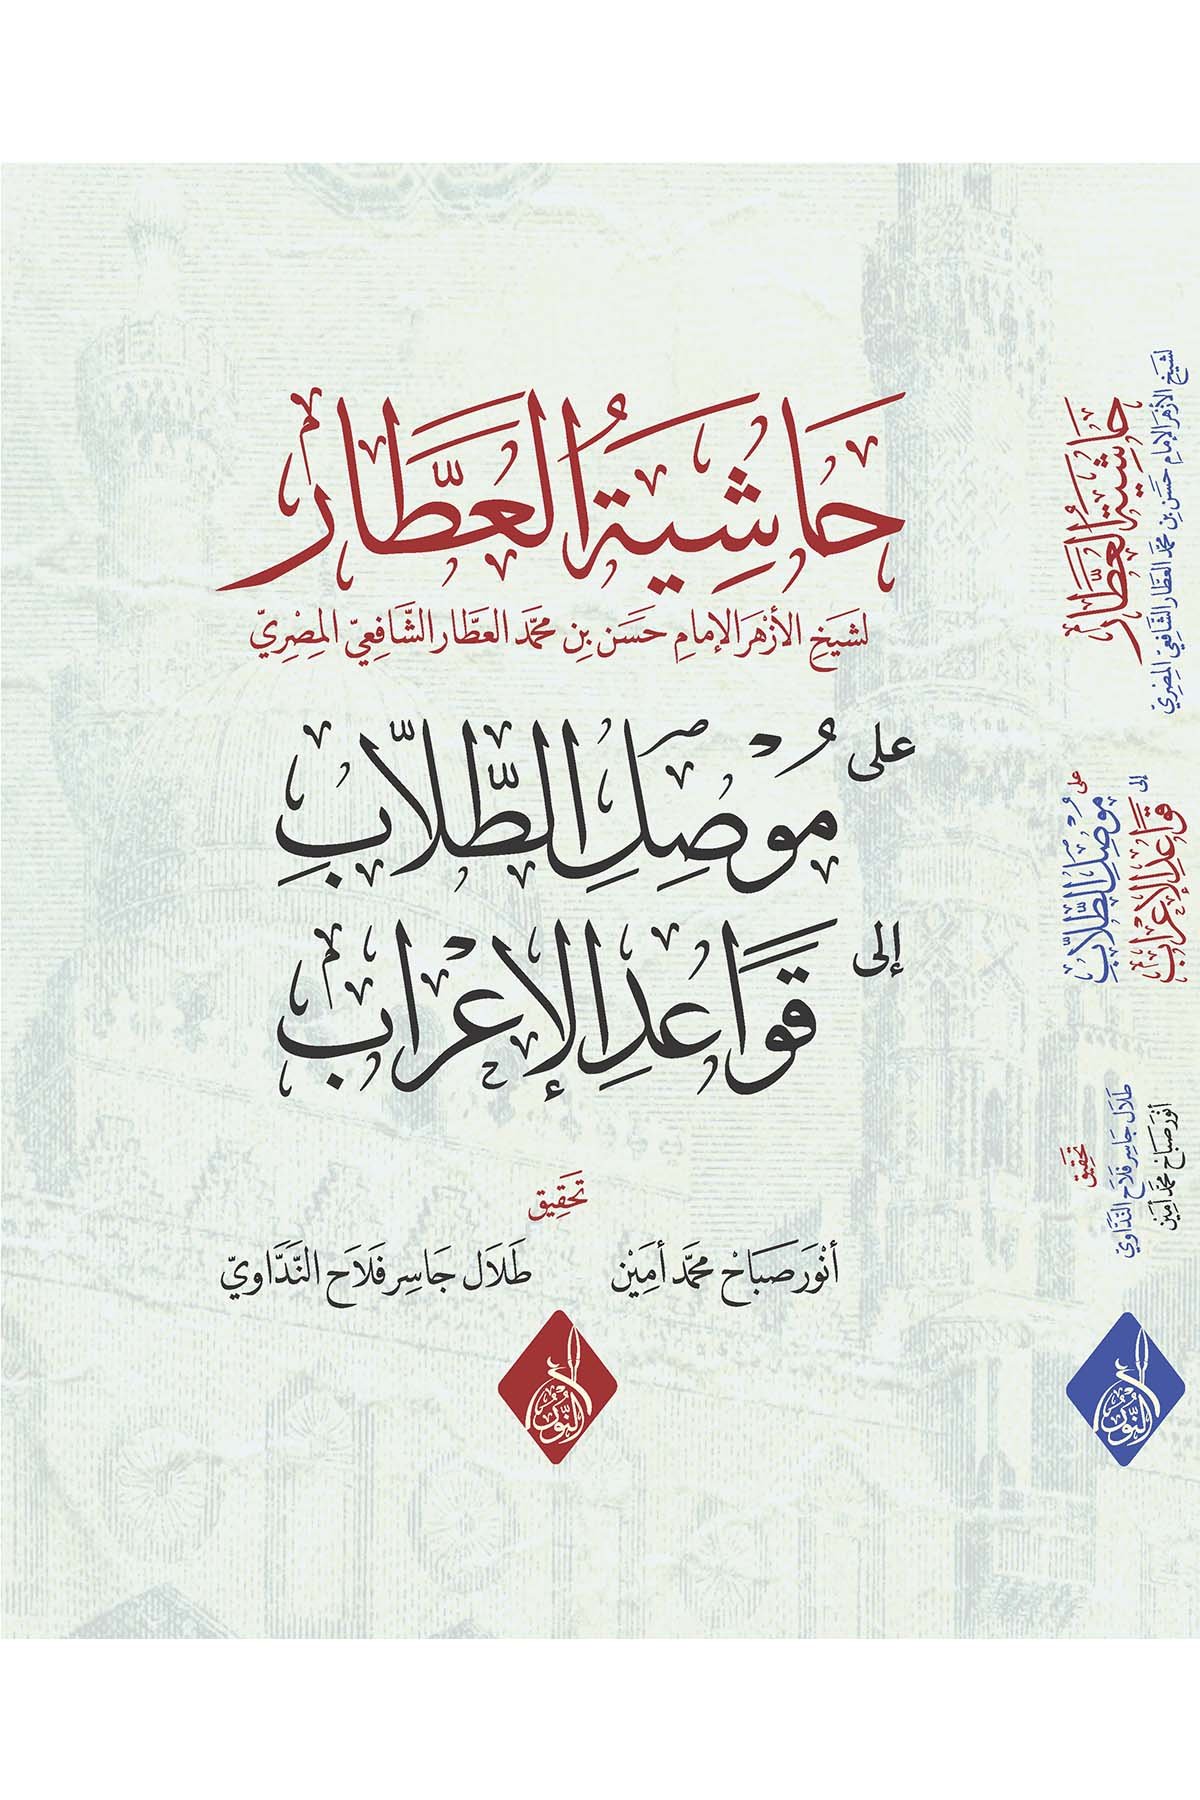 حَاشِيَةُ العَطَّار
لشيخ الأزهر الإمامِ حَسَن بِن محمَّد العَطَّار الشَّافِعِيّ المِصْرِيّ
على
مُوْصِلِ الطُّلاَّبِ
إلى
قَوَاعِدِ الإِعْرَاب
تَحَقِيق
أنْوَر صَبَاحْ محمَّد أمَيْن طَلَال جَاسِر فَلَاح النَّدَّاوِيّ
النُّور
حَاشِيَةُ العَطَّار
لشيخ الأزهر الإمامِ حَسَن بِن محمَّد العَطَّار الشَّافِعِيّ المِصْرِيّ
على
مُوْصِلِ الطُّلاَّبِ
إلى
قَوَاعِدِ الإِعْرَاب
تَحَقِيق
طَلَال جَاسِر فَلَاح النَّدَّاوِيّ
أنْوَر صَبَاحْ محمَّد أمَيْن
النُّور